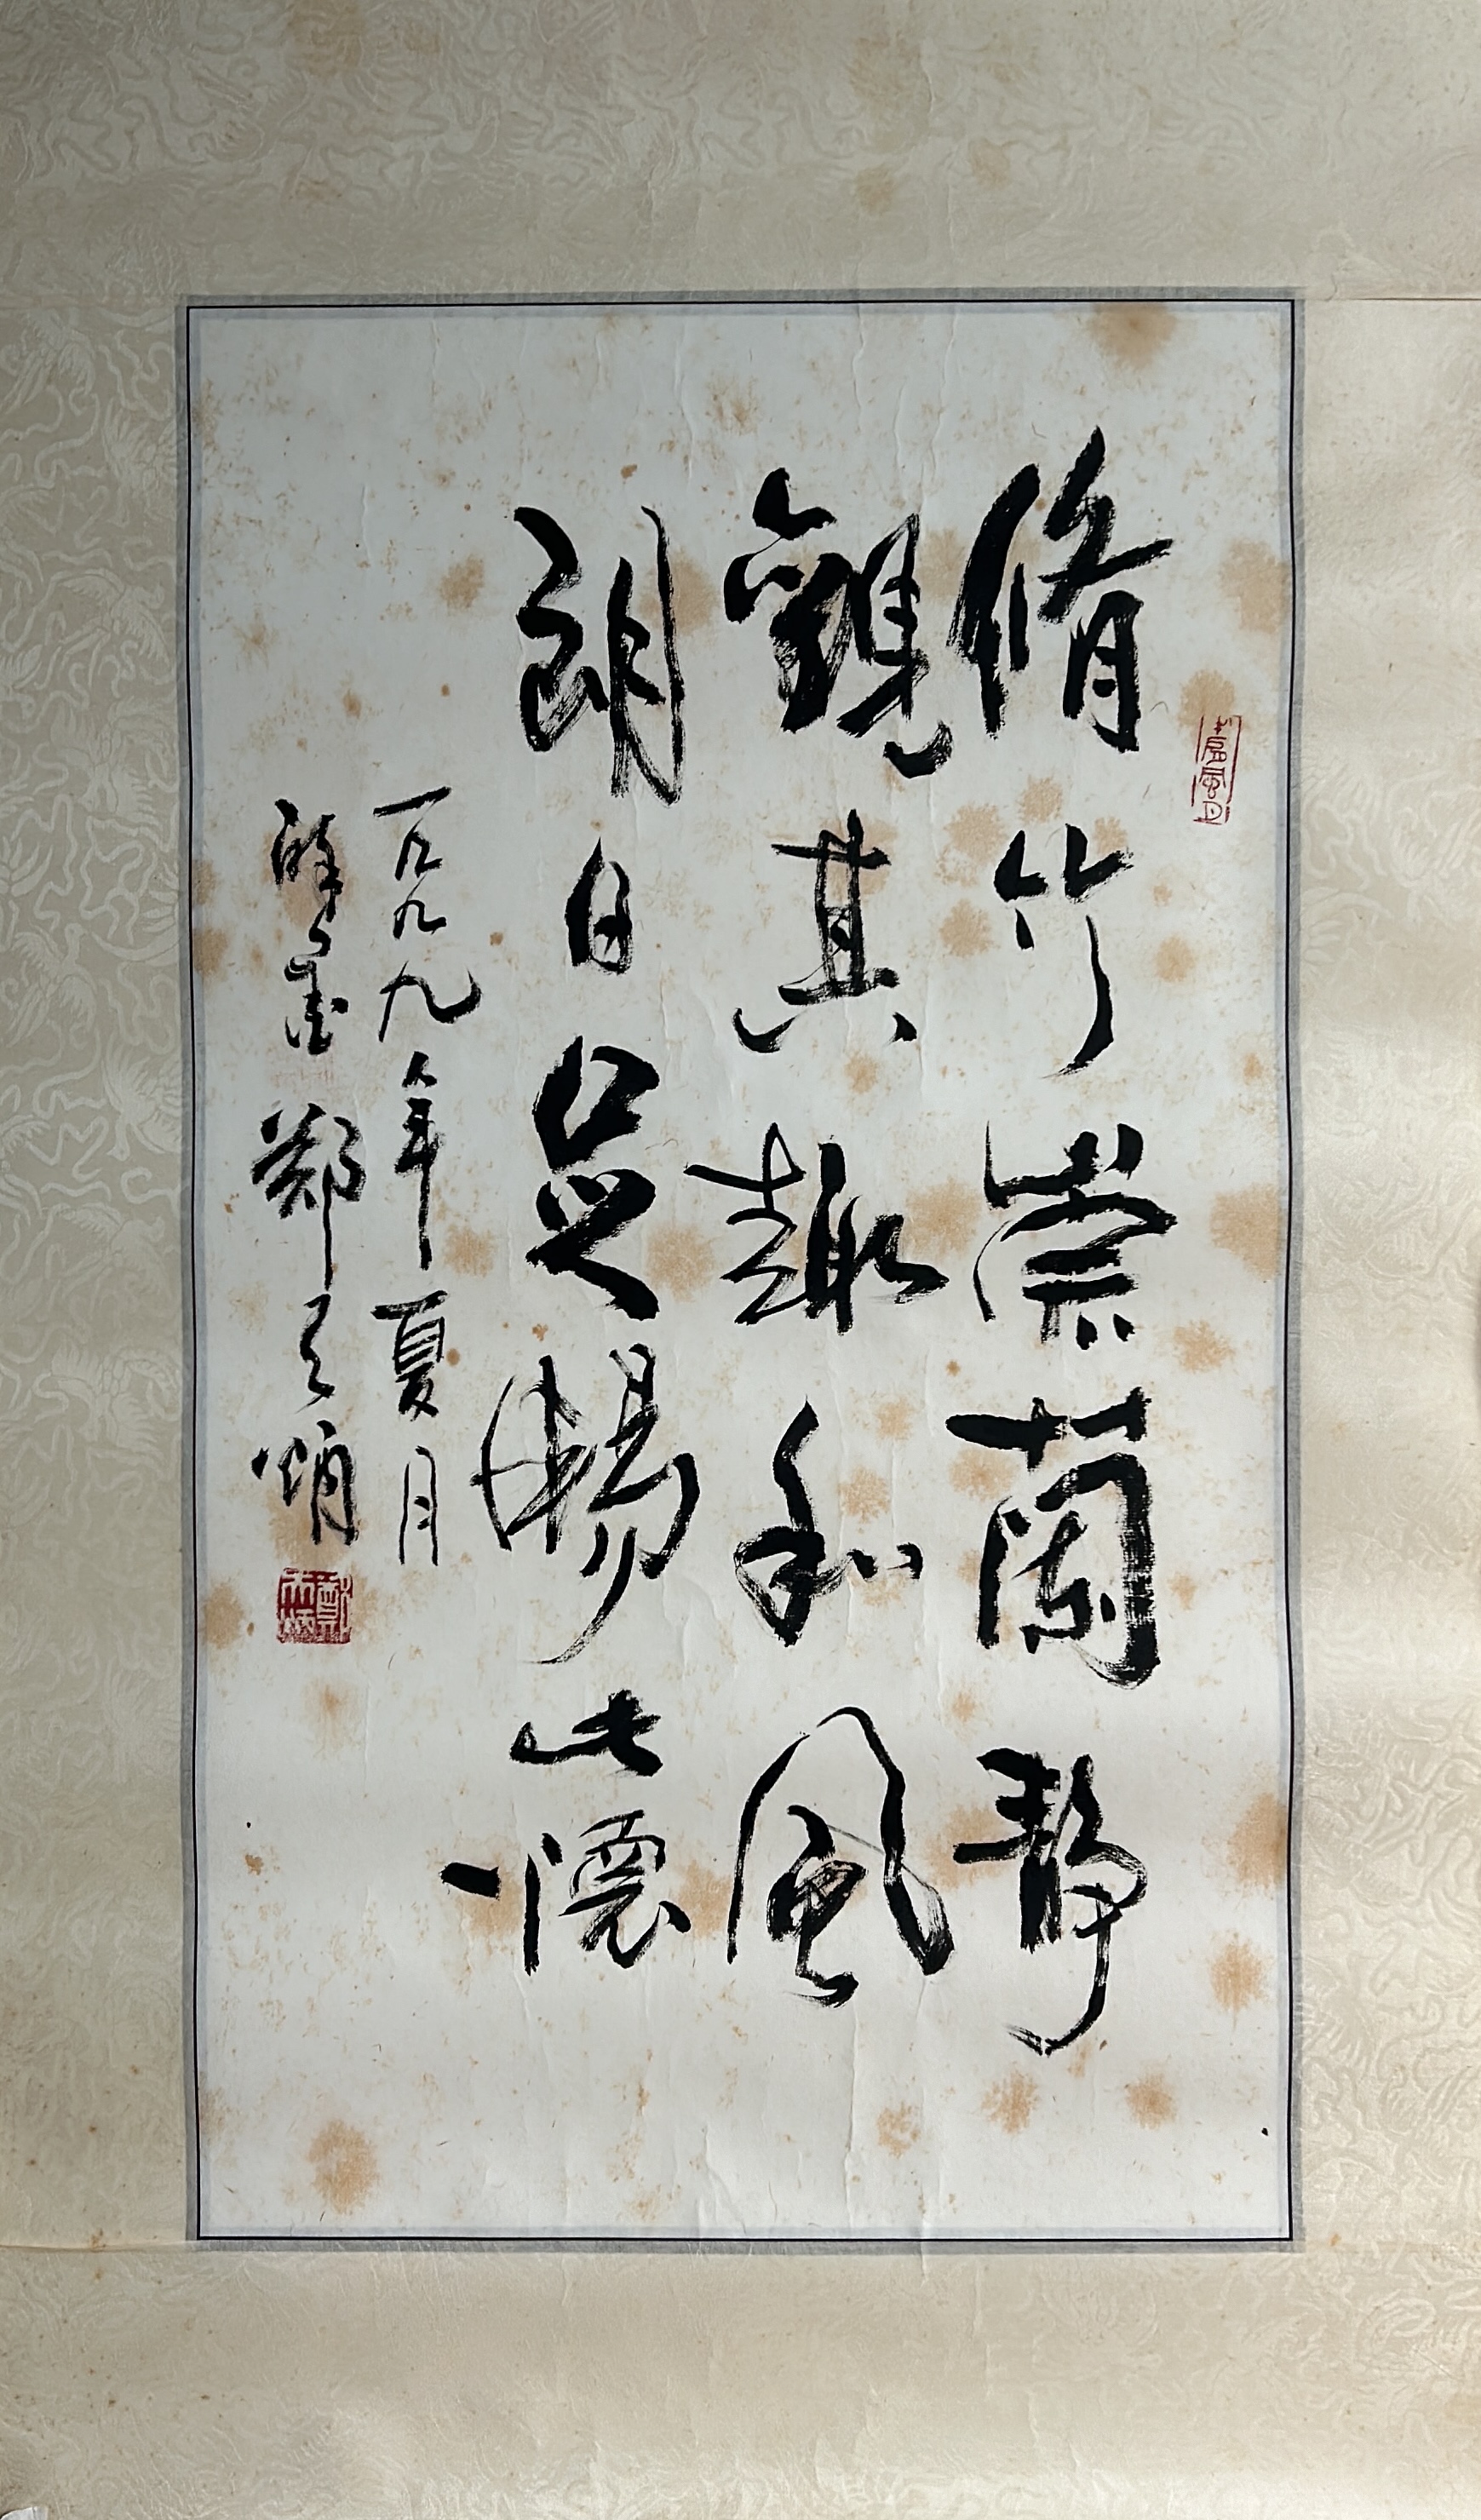 脩竹崇蘭靜
觀其趣和風
朗日足暢此懷
一九九九年夏月
郑天炳